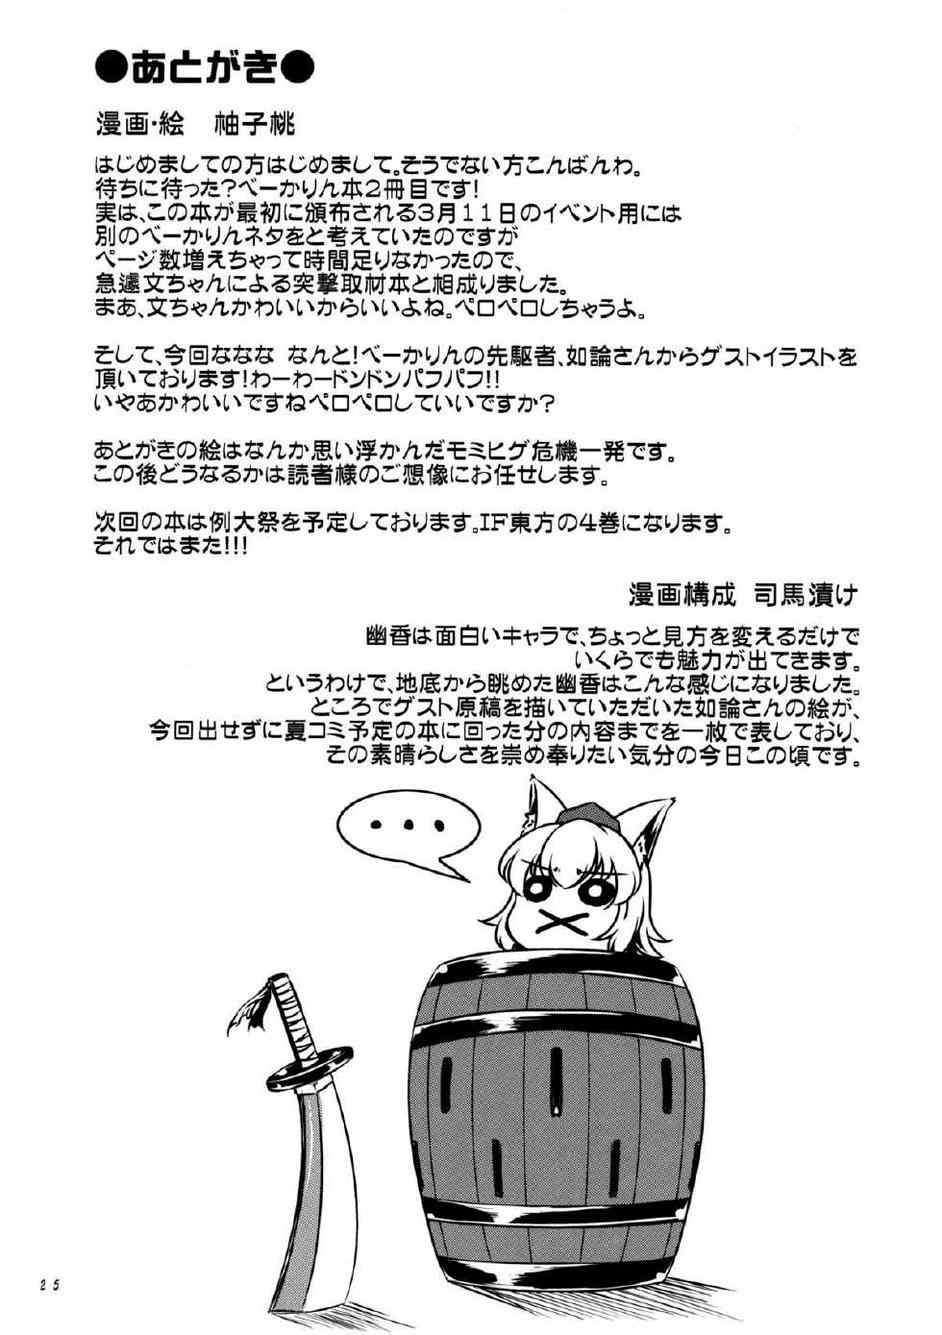 ●あとがき●
漫画・絵　柚子桃
はじめましての方はじめまして。そうでない方こんばんわ。
待ちに待った？べーかりん本２冊目です！
実は、この本が最初に頒布される３月１１日のイベント用には
別のべーかりんネタをと考えていたのですが
ページ数増えちゃって時間足りなかったので、
急遽文ちゃんによる突撃取材本と相成りました。
まあ、文ちゃんかわいいからいいよね。ペロペロしちゃうよ。
そして、今回ななな なんと！べーかりんの先駆者、如論さんからゲストイラストを
頂いております！わーわードンドンパフパフ！！
いやあかわいいですねペロペロしていいですか？
あとがきの絵はなんか思い浮かんだモミヒゲ危機一発です。
この後どうなるかは読者様のご想像にお任せします。
次回の本は例大祭を予定しております。ＩＦ東方の４巻になります。
それではまた！！！
漫画構成　司馬漬け
幽香は面白いキャラで、ちょっと見方を変えるだけで
いくらでも魅力が出てきます。
というわけで、地底から眺めた幽香はこんな感じになりました。
ところでゲスト原稿を描いていただいた如論さんの絵が、
今回出せずに夏コミ予定の本に回った分の内容までを一枚で表しており、
その素晴らしさを崇め奉りたい気分の今日この頃です。
・・・
25